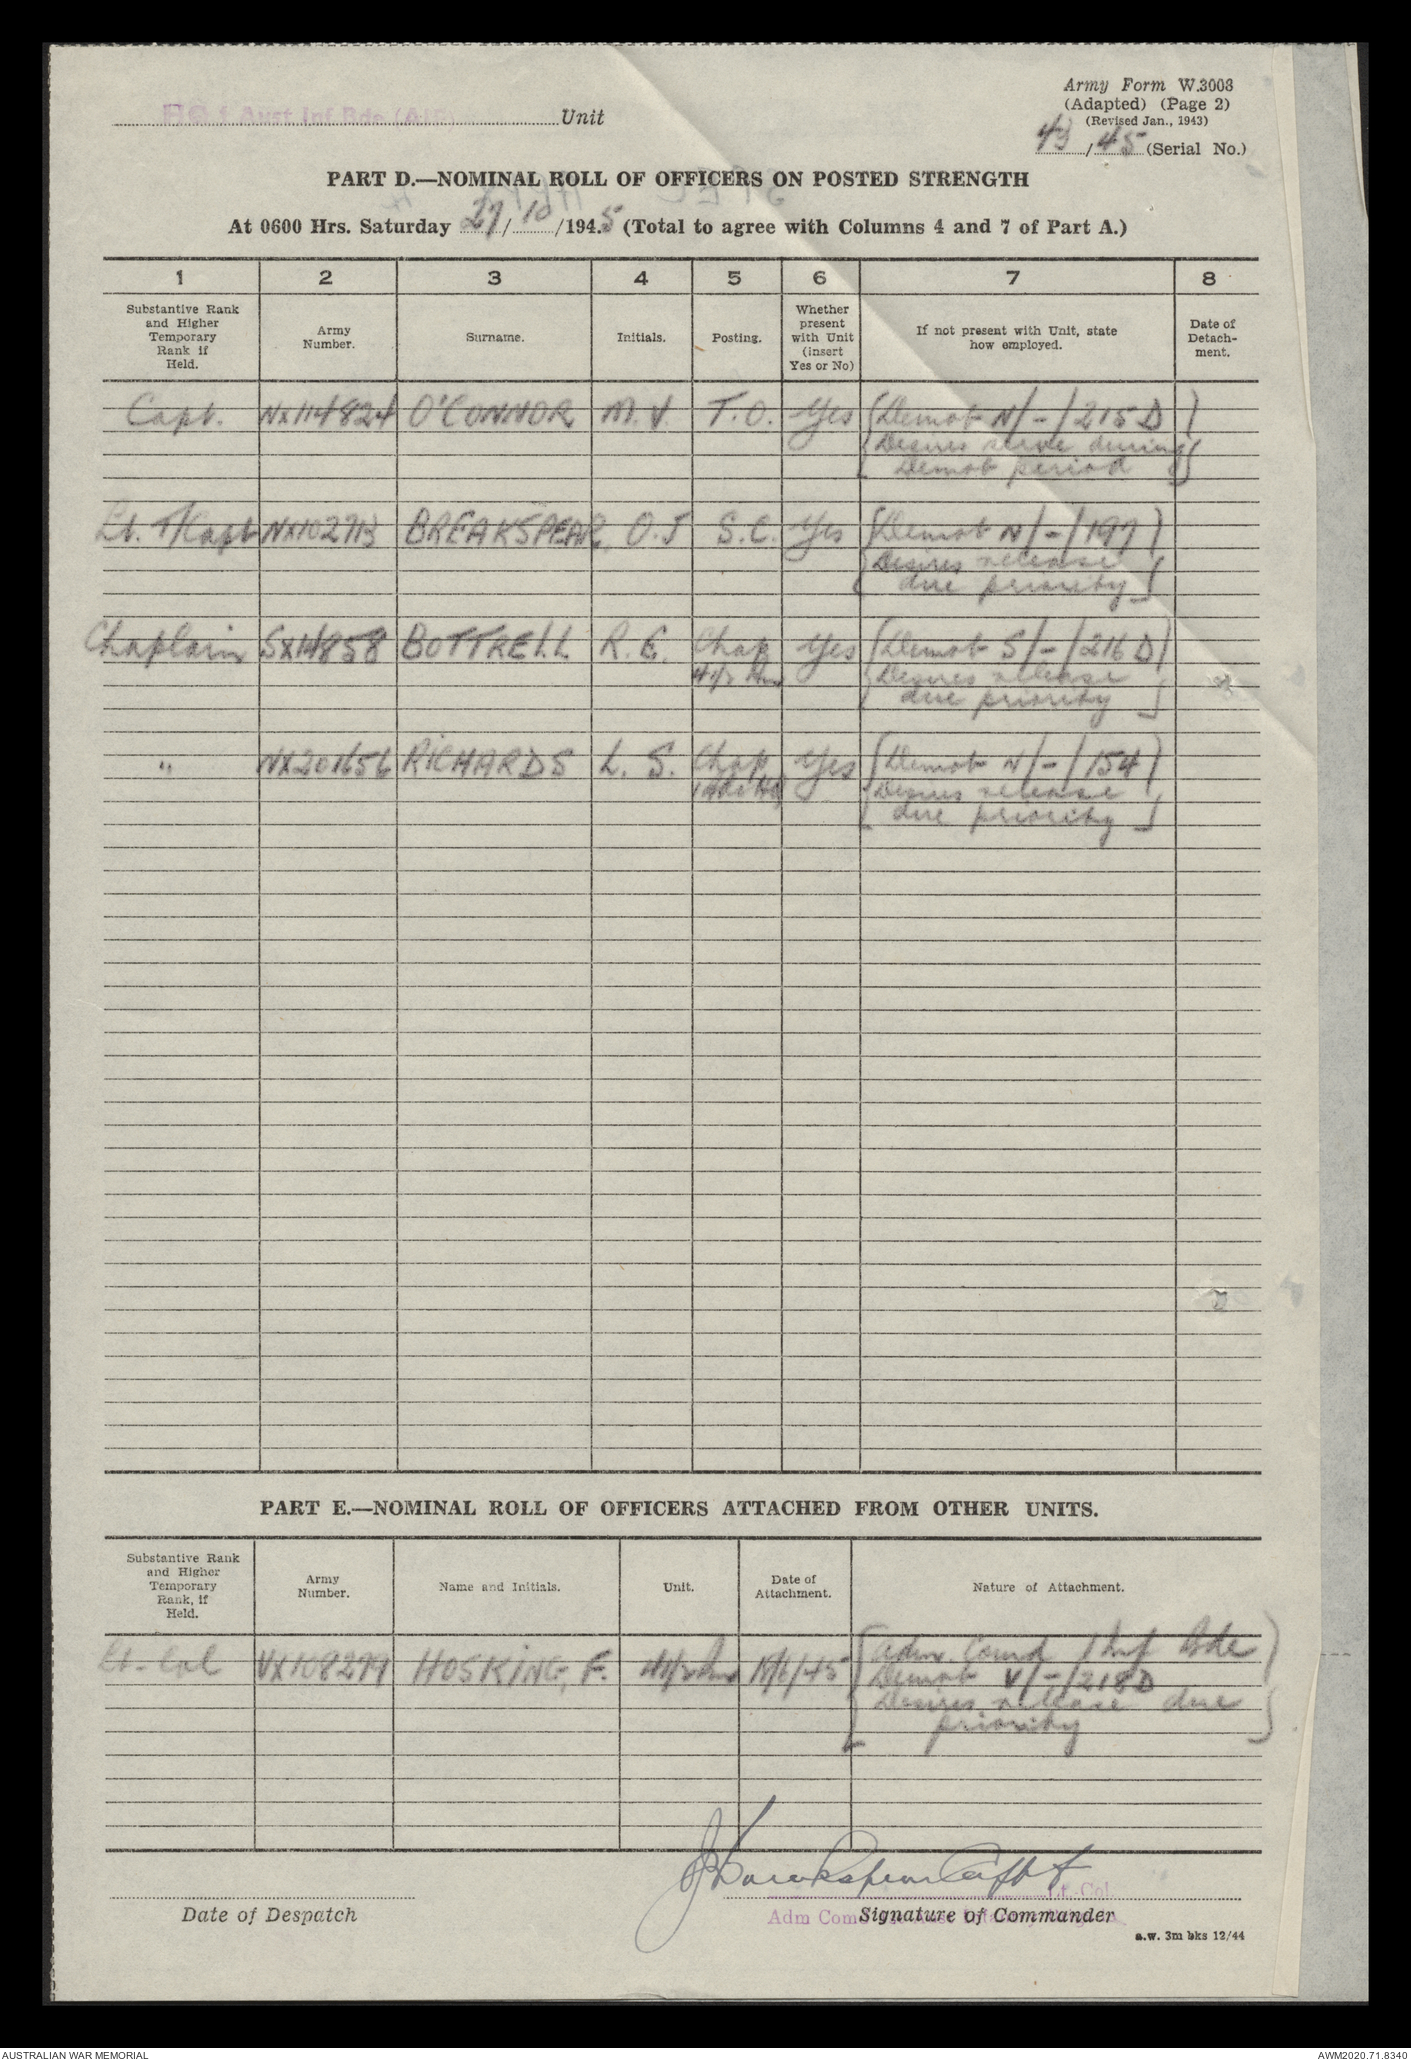 Army Form W.3008
(Adapted) (Page 2)
(Revised Jan., 1943)
HQ 1 Aust Inf Bde (AIF) Unit
43/45 (Serial No.)
PART D.—NOMINAL ROLL OF OFFICERS ON POSTED STRENGTH
At 0600 Hrs. Saturday 27/10/1945 (Total to agree with Columns 4 and 7 of Part A.)
1 2 3 4 5 6 7 8
Substantive Rank
and Higher
Temporary
Rank if
Held.
Army
Number.
Surname.
Initials.
Posting.
Whether
present
with Unit
(insert
Yes or No)
If not present with Unit, state
how employed.
Date of
Detach-
ment.
Capt. NX114824 O'CONNOR M.V. T.O. Yes (Demob N/-/215D)
Desires serve during
Demob period
Lt. T/Capt NX102713 BREAKSPEAR, O.J S.C. Yes (Demob N/-/197)
Desires release
due priority
Chaplain SX14858 BOTTRELL R.E. Chap Yes (Demob S/-/216D)
Desires release
due priority
" NX201656 RICHARDS L.S. Chap Yes (Demob N/-/154)
Desires release
due priority
PART E.—NOMINAL ROLL OF OFFICERS ATTACHED FROM OTHER UNITS.
Substantive Rank
and Higher
Temporary
Rank, if
Held.
Army
Number.
Name and Initials.
Unit.
Date of
Attachment.
Nature of Attachment.
Lt-Col VX108299 HOSKING, F. /45 Adm. Comd 1 Inf Bde
Demob V/-/218D
Desires release due
priority
Capt
Lt.-Col.
Adm Comd
Date of Despatch
Signature of Commander
a.w. 3m bks 12/44
AUSTRALIAN WAR MEMORIAL
AWM2020.71.8340